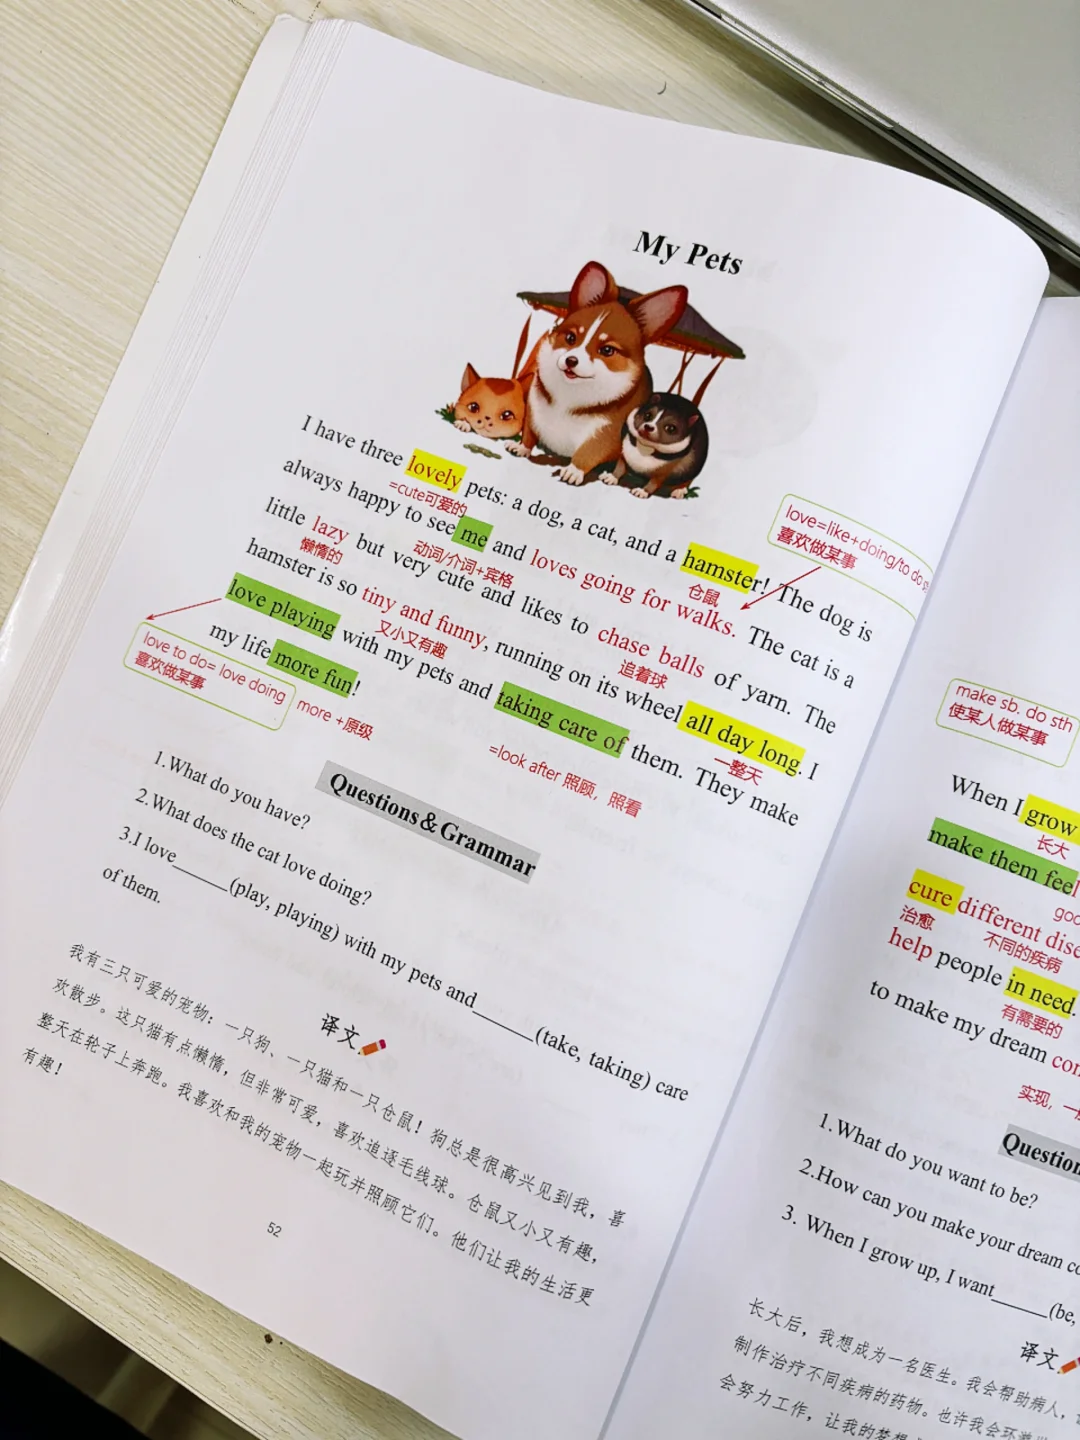 My Pets
I have three lovely pets: a dog, a cat, and a hamster! The dog is
=cute可爱的
仓鼠
love=like+doing/to do
喜欢做某事
always happy to see me and loves going for walks. The cat is a
动词/介词+宾格
little lazy but very cute and likes to chase balls of yarn. The
懒惰的
追着球
hamster is so tiny and funny, running on its wheel all day long. I
又小又有趣
一整天
love playing with my pets and taking care of them. They make
love to do= love doing
喜欢做某事
=look after 照顾，照看
my life more fun!
more +原级
Questions＆Grammar
1.What do you have?
2.What does the cat love doing?
3.I love_____(play, playing) with my pets and_____(take, taking) care
of them.
译文
我有三只可爱的宠物：一只狗、一只猫和一只仓鼠！狗总是很高兴见到我，喜
欢散步。这只猫有点懒惰，但非常可爱，喜欢追逐毛线球。仓鼠又小又有趣，
整天在轮子上奔跑。我喜欢和我的宠物一起玩并照顾它们。他们让我的生活更
有趣！
52
make sb. do sth
使某人做某事
When I grow
长大
make them feel
cure different
治愈
不同的疾病
help people in need.
有需要的
to make my dream
实现，
1.What do you want to be?
2.How can you make your dream
3. When I grow up, I want_____(be,
译文
长大后，我想成为一名医生。我会帮助病人，
制作治疗不同疾病的药物。也许我会环游
会努力工作，让我的梦想